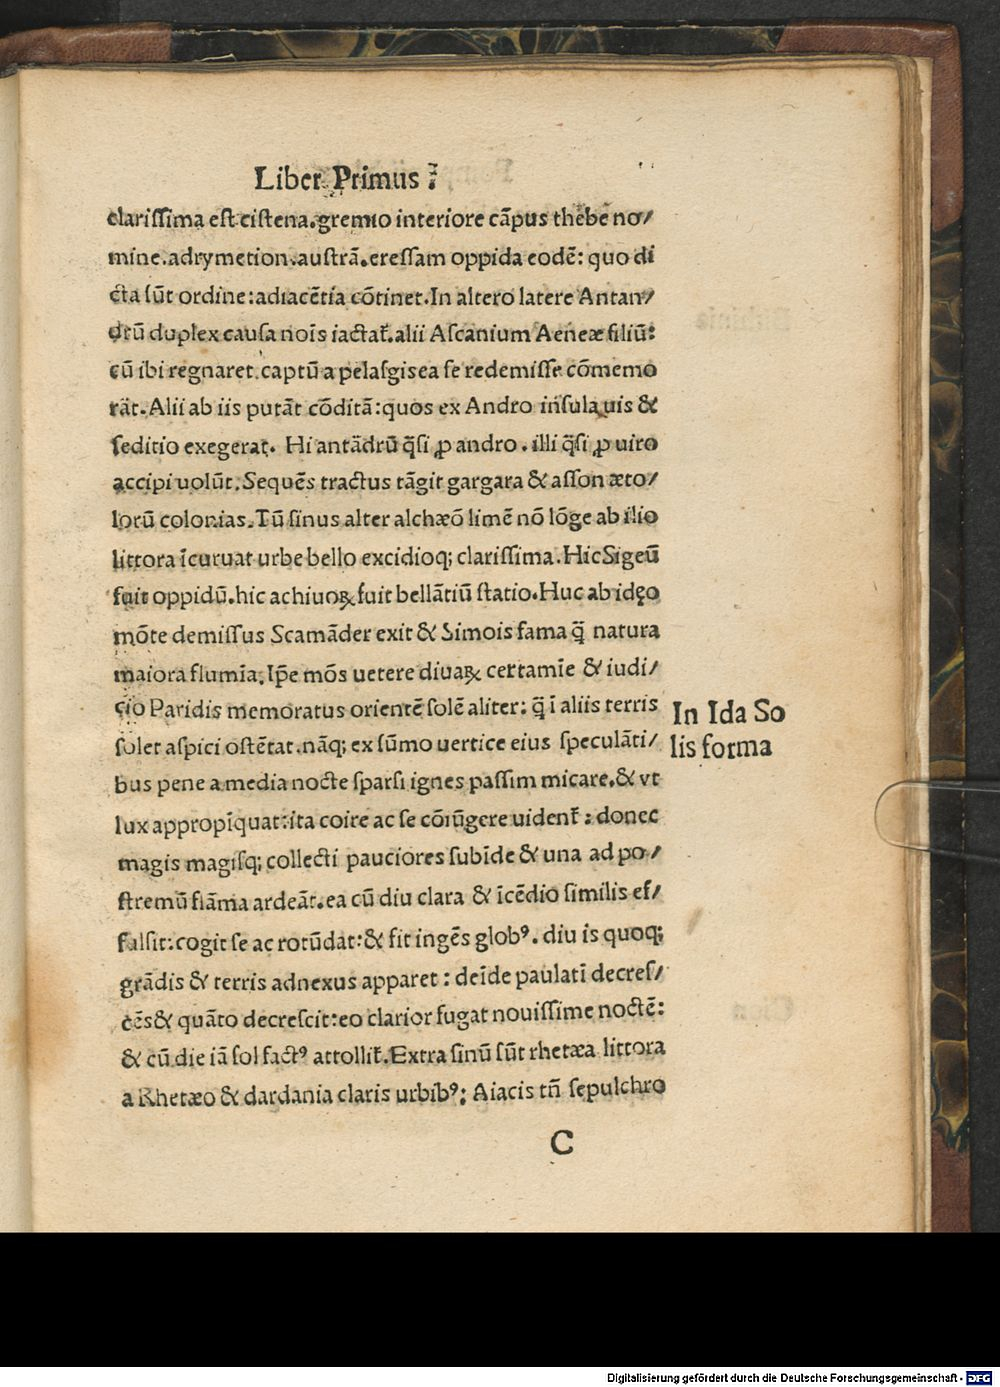 Liber Primus ⁊
clarissima est cistena.gremio interiore cãpus thebe no/
mine.adrymetion.austrã.cressam oppida eodẽ: quo di
cta sũt ordine:adiacẽtia cõtinet.In altero latere Antan/
drũ duplex causa noĩs iactat᷑.alii Ascanium Aeneæ filiũ:
cũ ibi regnaret.captũ a pelasgis ea se redemisse cõmemo
rãt.Alii ab iis putãt cõditã:quos ex Andro insula uis &
seditio exegerat. Hi antãdrũ q̃si ꝓ andro.illi q̃si ꝓ uiro
accipi uolũt.Sequẽs tractus tãgit gargara & asson æto/
lorũ colonias.Tũ sinus alter alchæõ limẽ nõ lõge ab ilio
littora ĩcuruat urbe bello excidioq; clarissima.Hic Sigeũ
fuit oppidũ.hic achiuoꝝ fuit bellãtiũ statio.Huc ab idęo
mõte demissus Scamãder exit & Simois fama q̃ natura
maiora flumĩa.Ip̃e mõs uetere diuaꝝ certamĩe & iudi/
cio Paridis memoratus orientẽ solẽ aliter: q̃ ĩ aliis terris
solet aspici ostẽtat.nãq; ex sũmo uertice eius speculãti/
bus pene a media nocte sparsi ignes passim micare.& vt
lux appropĩquat:ita coire ac se cõiũgere uident᷑: donec
magis magisq; collecti pauciores subĩde & una ad po/
stremũ flãma ardeãt.ea cũ diu clara & ĩcẽdio similis ef/
fulsit:cogit se ac rotũdat:& fit ingẽs globꝰ. diu is quoq;
grãdis & terris adnexus apparet: deĩde paulatĩ decres/
cẽs & quãto decrescit:eo clarior fugat nouissime noctẽ:
& cũ die iã sol factꝰ attollit᷑.Extra sinũ sũt rhetæa littora
a Rhetæo & dardania claris urbibꝰ: Aiacis tñ sepulchro
C
In Ida So
lis forma
Digitalisierung gefördert durch die Deutsche Forschungsgemeinschaft - DFG